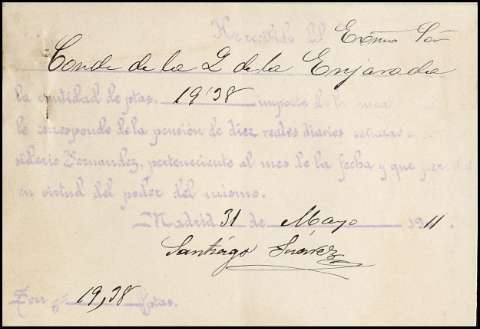 He recibido del Exmo Sor
Conde de la Q de la Enjarada
la cantidad de ptas. 19'38 importe de la
le corresponde de la pension de diez reales diarios
Fernandez, perteneciente al mes de la fecha y que
en virtud del poder del mismo.
Madrid 31 de Mayo 1911
Santiago Suarez
Son 19,38 Ptas.